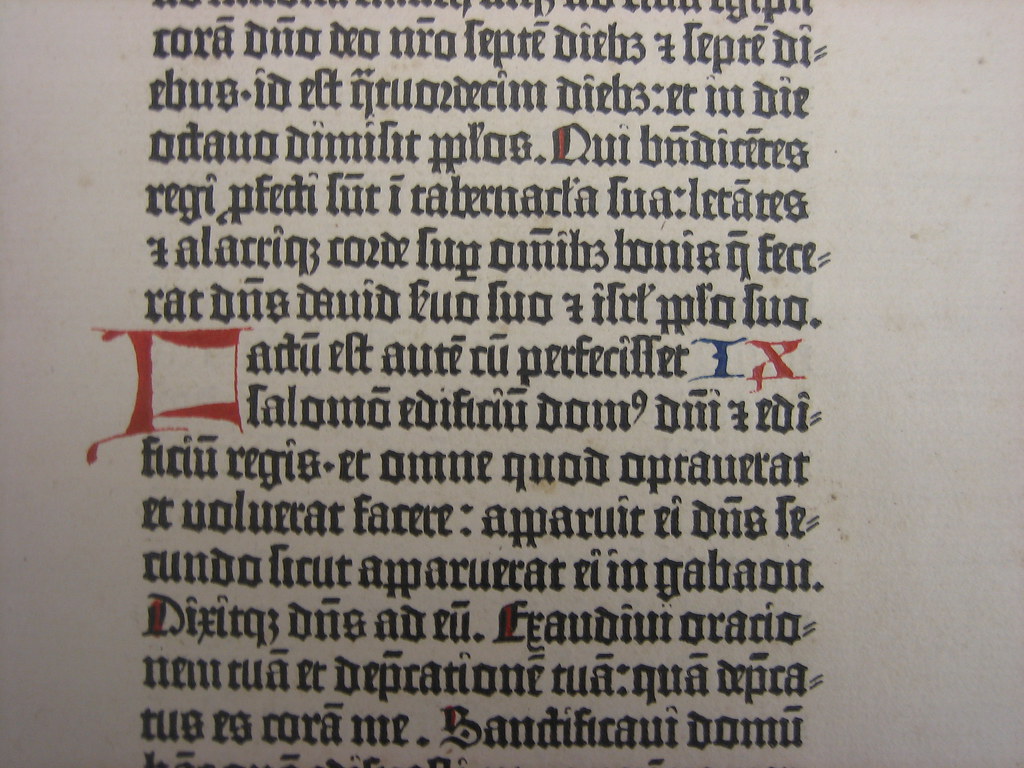 corā dño deo nr̄o septē dieb₃ ⁊ septē di⸗
ebus·id est q̄tuordecim dieb₃:et in die
octauo dimisit pp̄los. Qui bn̄dicētes
regi ꝓfecti sūt ī tabernac̄la sua:letātes
⁊ alacriq₃ corde suꝑ om̄ib₃ bonis q̄ fece⸗
rat dn̄s dauid s̄uo suo ⁊ isrl̄ pp̄lo suo.
Factū est autē cū perfecisset IX
salomō edificiū domꝰ dn̄i ⁊ edi⸗
ficiū regis·et omne quod optauerat
et voluerat facere: apparuit ei dn̄s se⸗
cundo sicut apparuerat ei in gabaon.
Dixitq₃ dn̄s ad eū. Exaudiui oracio⸗
nem tuā et dep̄cationē tuā:quā dep̄ca⸗
tus es corā me. Sanctificaui domū